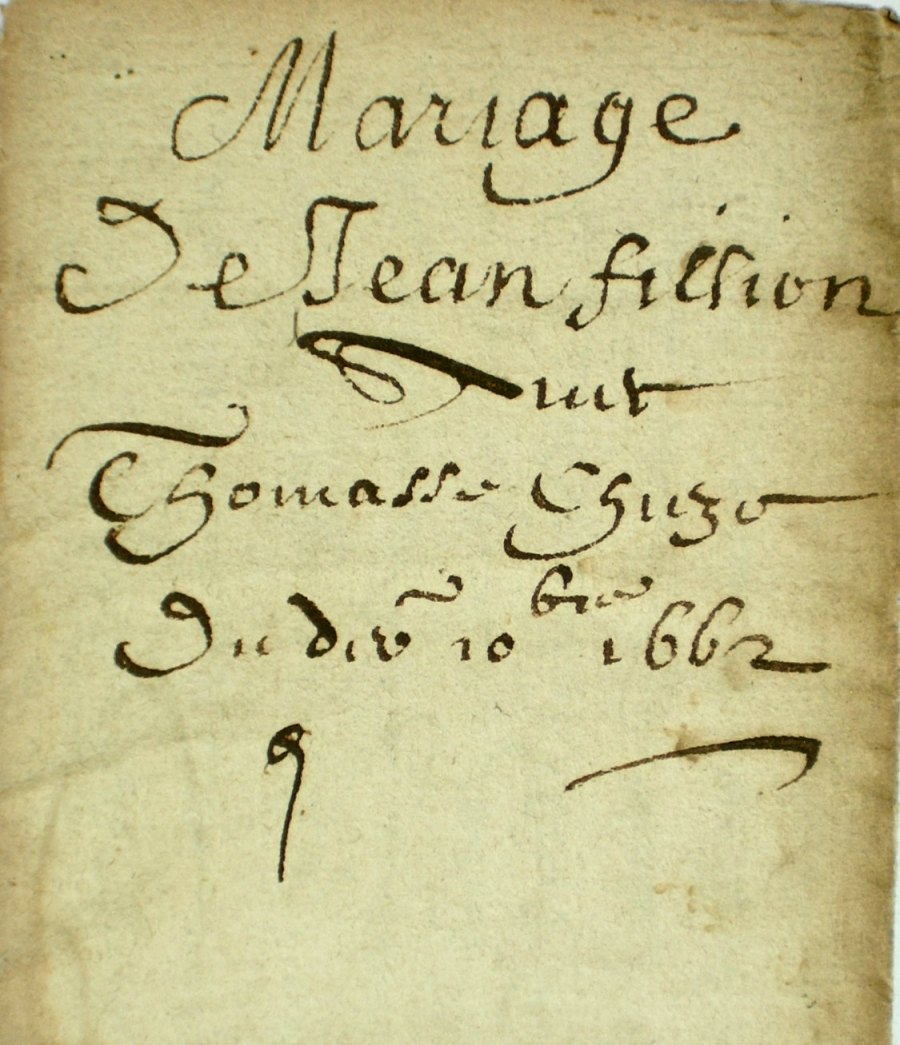 Mariage
De Jean fillion
Avec
Thomasse Chuzo
Du dixe 10bre 1662